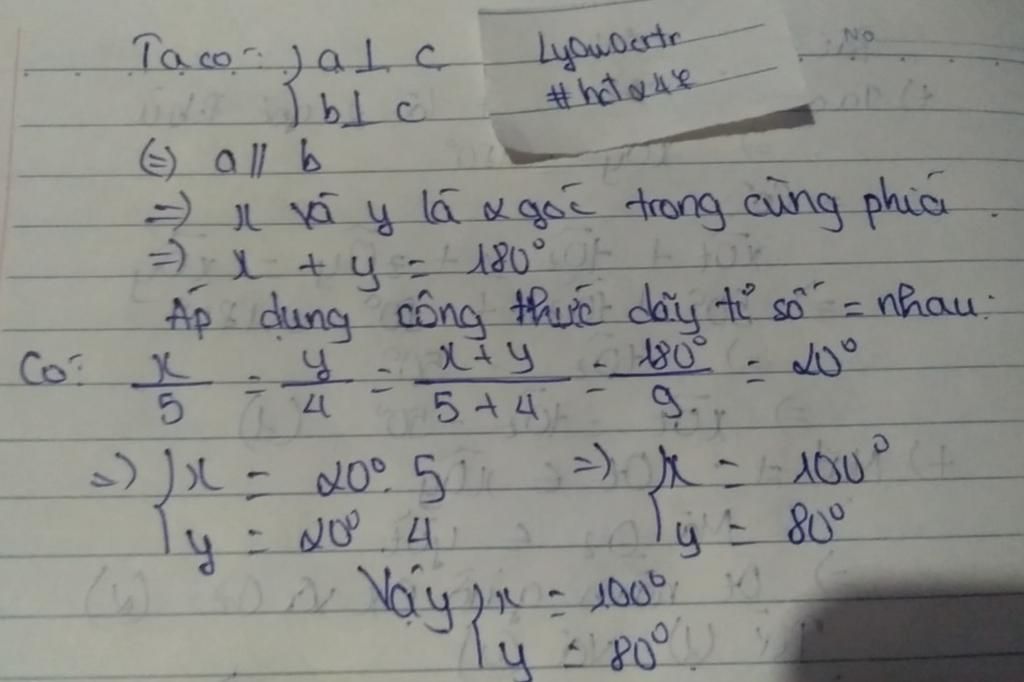 Ta có: } a ⊥ c
} b ⊥ c
(=) a // b
=) x và y là 2 góc trong cùng phía.
=) x + y = 180°
Áp dụng công thức dãy tỉ số = nhau:
Có: x/5 = y/4 = x + y/5 + 4 = 180°/9 = 20°
=) { x = 20°. 5 =) { x = 100°
{ y = 20° 4 { y = 80°
Vậy { x = 100°
{ y = 80°
No